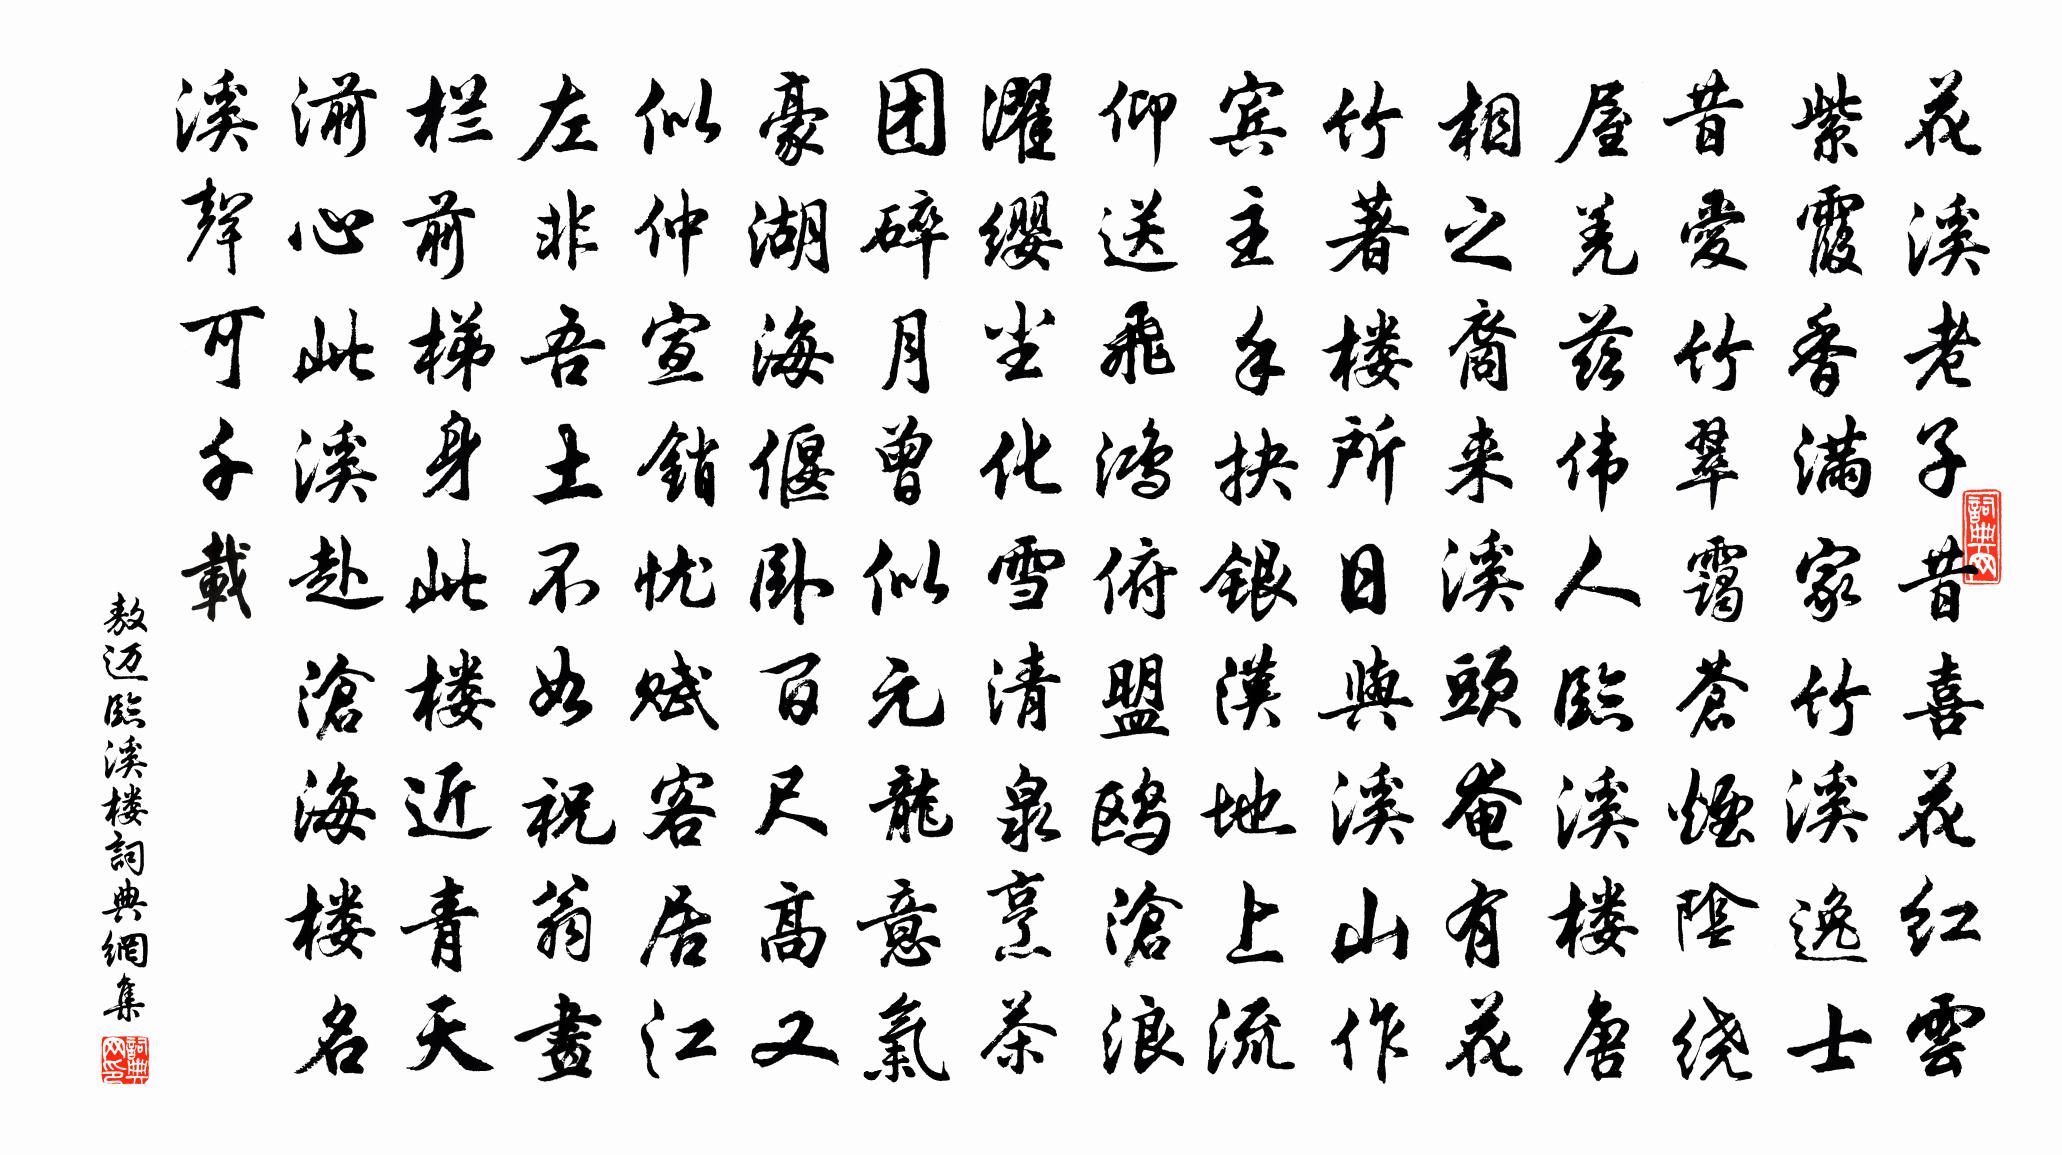 花溪老子昔喜花红雲
紫霞香满家竹溪逸士
昔爱竹翠霭苍煙陰绕
屋羌兹伟人臨溪楼唐
相之裔来溪頭奄有花
竹著楼所日與溪山作
宾主手抉银漢地上流
仰送飛鸿俯盟鸥滄浪
濯缨尘化雪清泉烹茶
团碎月曾似元龍意氣
豪湖海偃卧百尺高又
似仲宣銷忧赋客居江
左非吾土不如祝翁畫
栏前梯身此楼近青天
湔心此溪赴滄海楼名
溪聲可千載
敖迈臨溪楼詞典網集
詞典网